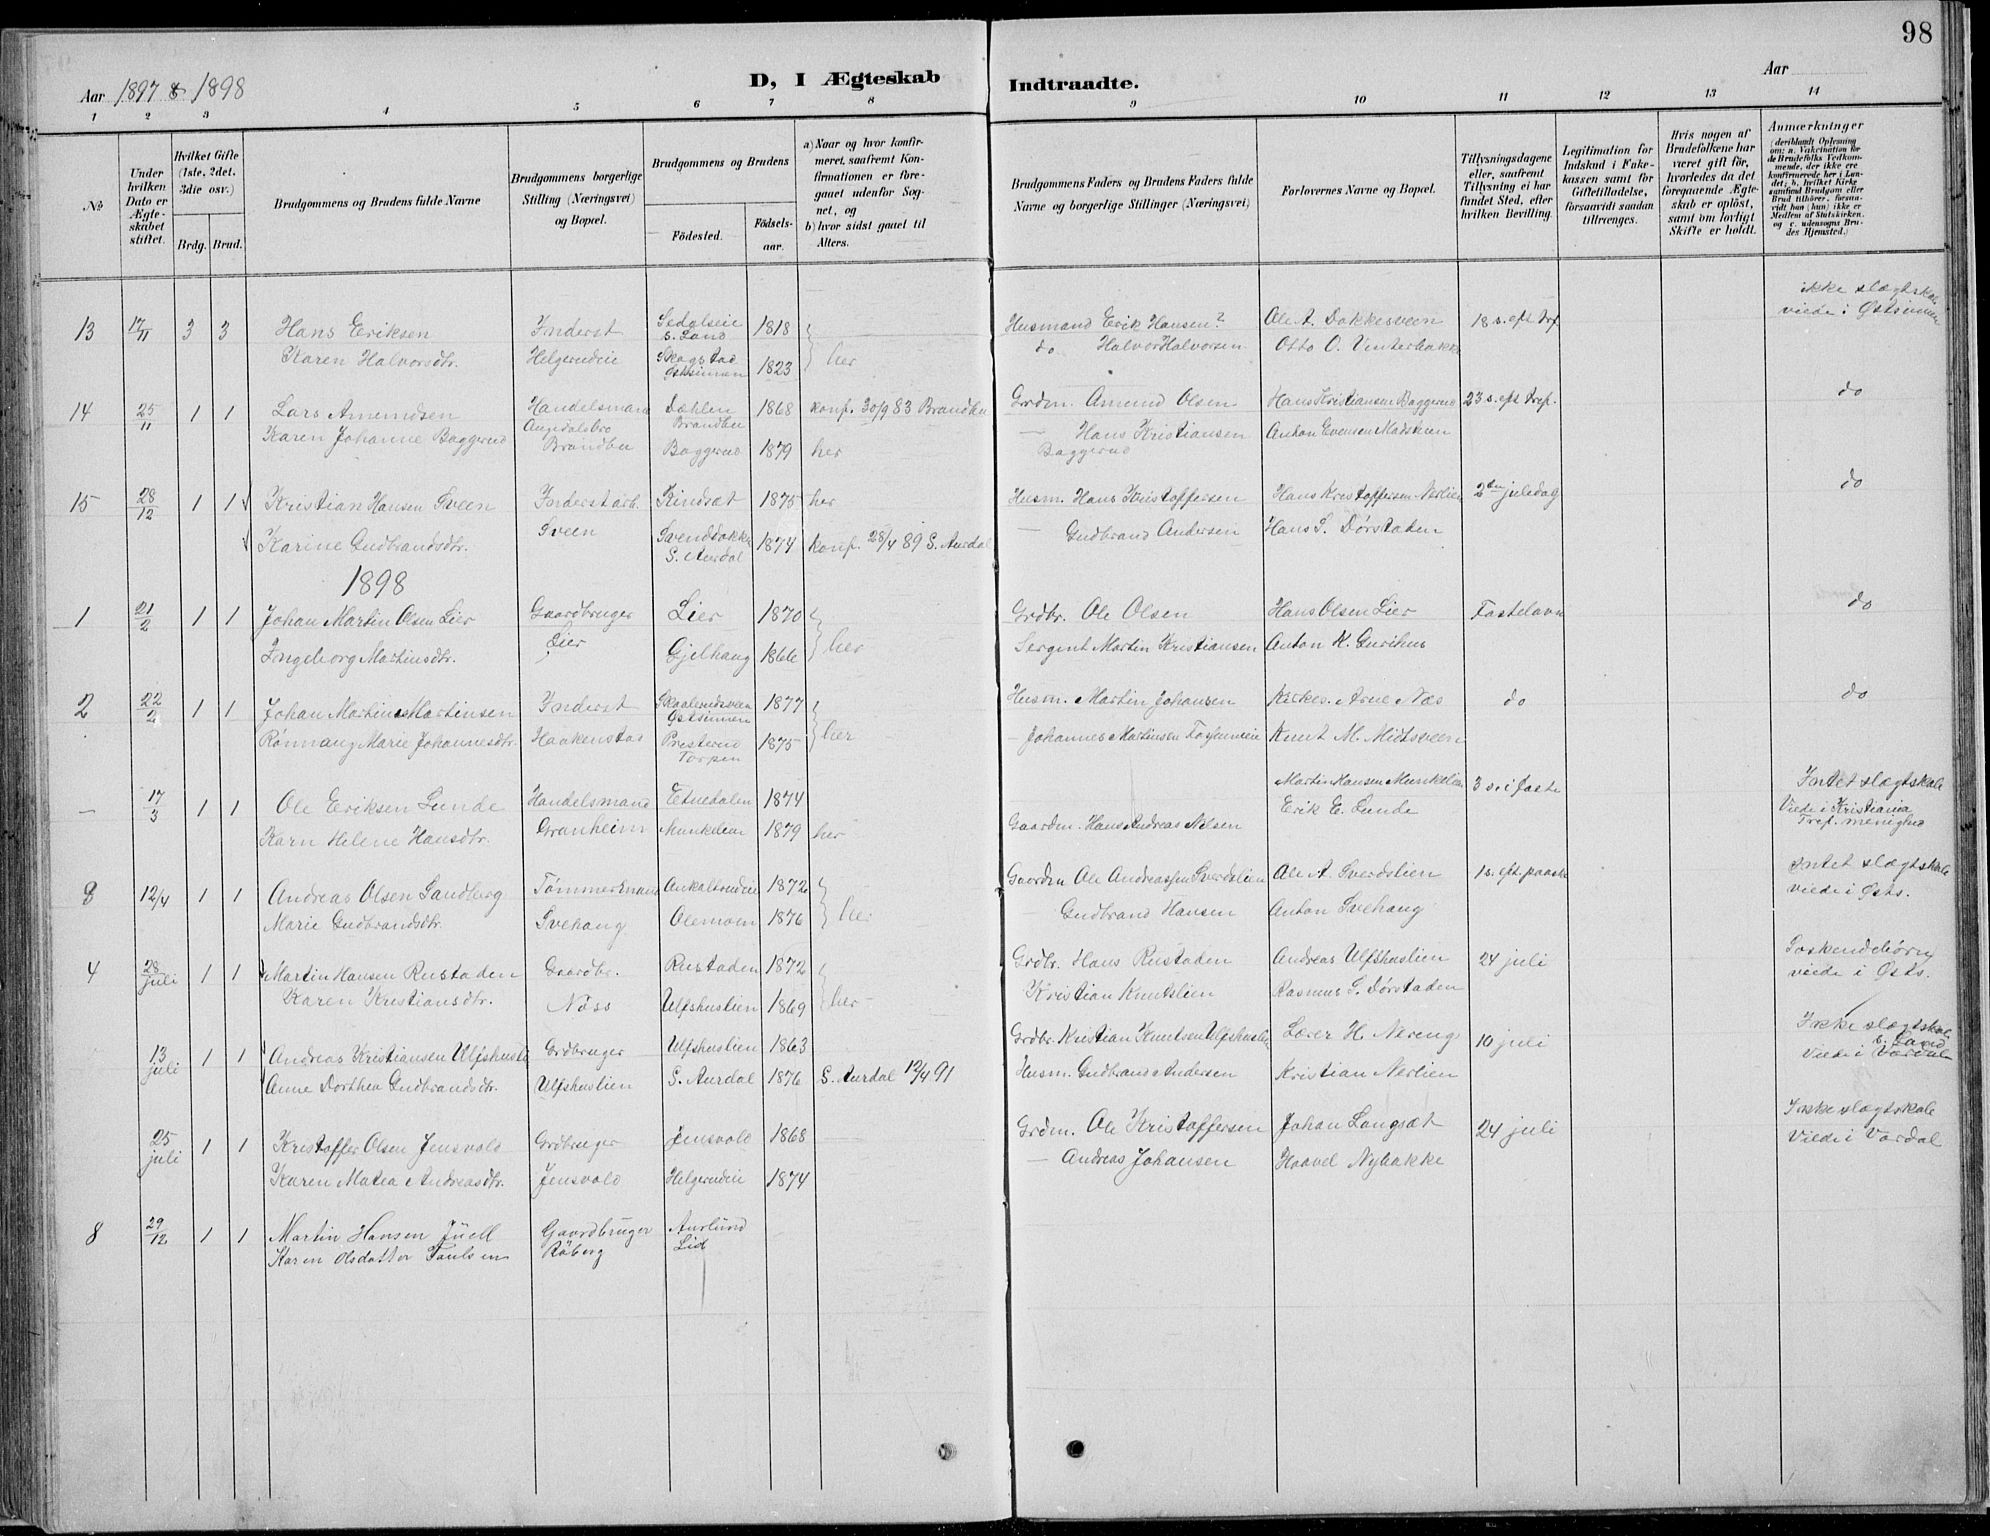 98
Aar 1897 & 1898
D, I Ægteskab Indtraadte.
Aar
1 2 3 4 5 6 7 8 9 10 11 12 13 14
No
Under hvilken Dato er Ægteskabet stiftet.
Hvilket Gifte (1ste, 2det, 3die osv.)
Brdg. Brud.
Brudgommens og Brudens fulde Navne
Brudgommens borgerlige Stilling (Næringsvei) og Bopæl.
Brudgommens og Brudens
Födested.
Födselsaar.
a) Naar og hvor konfirmeret, saafremt Konfirmationen er foregaaet udenfor Sognet, og
b) hvor sidst gaaet til Alters.
Brudgommens Faders og Brudens Faders fulde Navne og borgerlige Stillinger (Næringsvei)
Forlovernes Navne og Bopæl.
Tillysningsdagene eller, saafremt Tillysning ei har fundet Sted, efter hvilken Bevilling.
Legitimation for Indskud i Enkekassen samt for Giftetilladelse, forsaavidt saadan tiltrænges.
Hvis nogen af Brudefolkene har været gift för, hvorledes da det foregaaende Ægteskab er oplöst, samt om lovligt Skifte er holdt.
Anmærkninger
(deriblandt Oplysning om: a. Vakcination for de Brudefolks Vedkommende, der ikke ere konfirmerede her i Landet; b. hvilket Kirkesamfund Brudgom eller Brud tilhörer, forsaavidt han (hun) ikke er Medlem af Statskirken, og c. udensogns Brudes Hjemsted.)
13 17/11 3 3 Hans Eriksen Inderst S. Land 1818 Husmand Erik Hansen? Ole A. Dokkesveen 18 s. eft. tref. ikke slægtskab viede i Østsinnen
Karen Halvorsdtr. Helgerudeie Skogstad Østsinnen 1823 her do Halvor Halvorsen Otto O. Vinterbakke
14 25/11 1 1 Lars Amundsen Handelsmand Dæhlen Brandbu 1868 konf. 30/9 83 Brandbu Grdm. Amund Olsen Hans Kristiansen Baggerud 23 s. eft tref. do
Karen Johanne Baggerud Brandbu Baggerud 1879 her — Hans Kristiansen Baggerud Anton Evensen
15 28/12 1 1 Kristian Hansen Sveen Inderst arb. Kindsæt 1875 her Husm. Hans Kristoffersen Hans Kristoffersen Nerlien 2den juledag do
Karine Gudbrandsdtr. Sveen S. Aurdal 1874 konf. 28/4 89 S. Aurdal — Gudbrand Andersen Hans S. Dørstaden
1898
1 21/2 1 1 Johan Martin Olsen Lier Gaardbruger Lier 1870 Grdbr. Ole Olsen Hans Olsen Lier Fastelavn do
Ingeborg Martinsdtr. Lier Gjelhaug 1866 her Sergent Martin Kristiansen Anton K. Gurihus
2 22/2 1 1 Johan Martin Martinsen Inderst Skaalerudsveen Østsinnen 1877 Husm. Martin Johansen Kirkes. Arne Næs do do
Rønnaug Marie Johannesdtr. Haakenstad Presterud Torpen 1875 her — Johannes Martinsen Knut M. Midtsveen
— 17/3 1 1 Ole Eriksen Lunde Handelsmand Etnedalen 1874 Martin Hansen Munkelien 3 s. i faste Intet slægtskab
Karn Helene Hansdtr. Granheim Munkelien 1879 her Gaardm. Hans Andreas Nilsen Erik E. Lunde Viede i Kristiania Tref. menighed
3 12/4 1 1 Andreas Olsen Sandberg Tømmermand 1872 Gaardm Ole Andreassen Sverdslien Ole A. Sverdslien 1 s. eft. paaske Intet slægtskab viede i Østs.
Marie Gudbrandsdtr. Svehaug Olemoen 1876 her — Gudbrand Hansen Anton Svehaug
4 28/juli 1 1 Martin Hansen Rustaden Gaardbr. Rustaden 1872 Grdbr. Hans Rustaden Andreas Ulfshuslien 24 juli Søskendebørn viede i Østs.
Karen Kristiansdtr. Næss Ulfshuslien 1869 her — Kristian Knutslien Rasmus S. Dørstaden
13/juli 1 1 Andreas Kristiansen Ulfshuslien Grdbruger Ulfshuslien 1863 Grdbr. Kristian Knutsen Ulfshuslien Lærer H. Nereng 10 juli Ikke slægtskab
Anne Dorthea Gudbrandsdtr. Ulfshuslien S. Aurdal 1876 S. Aurdal 12/4 91 Husm. Gudbrand Andersen Kristian Nerlien Viede i Vardal S. Land
25/juli 1 1 Kristoffer Olsen Jensvold Grdbruger Jensvold 1868 Grdm. Ole Kristoffersen Johan Langsæt 24 juli Ikke slægtskab
Karen Matea Andreasdtr. Jensvold Helgerudeie 1874 — Andreas Johansen Haavel Nybakke Viede i Vardal
8 29/12 1 1 Martin Hansen Juell Gaardbruger Aurlund
Karen Olsdatter Paulsen Røberg Lid